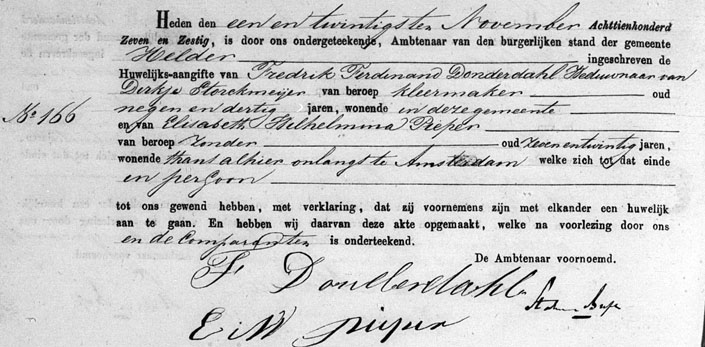 Heden den een en twintigsten November Achttienhonderd
Zeven en Zestig, is door ons ondergeteekende, Ambtenaar van den burgerlijken stand der gemeente
Helder ingeschreven de
Huwelijks-aangifte van Fredrik Ferdinand Donderdahl Weduwnaar van
Dirkje Storckmeijer van beroep kleermaker oud
negen en dertig jaren, wonende in deze gemeente
en van Elisabeth Wilhelmina Pieper
No 166
van beroep Zonder oud Zeven en twintig jaren,
wonende thans alhier onlangs te Amsterdam welke zich tot dat einde
in persoon
tot ons gewend hebben, met verklaring, dat zij voornemens zijn met elkander een huwelijk
aan te gaan. En hebben wij daarvan deze akte opgemaakt, welke na voorlezing door ons
en de Comparanten is onderteekend.
De Ambtenaar voornoemd.
F Donderdahl
E W Pieper